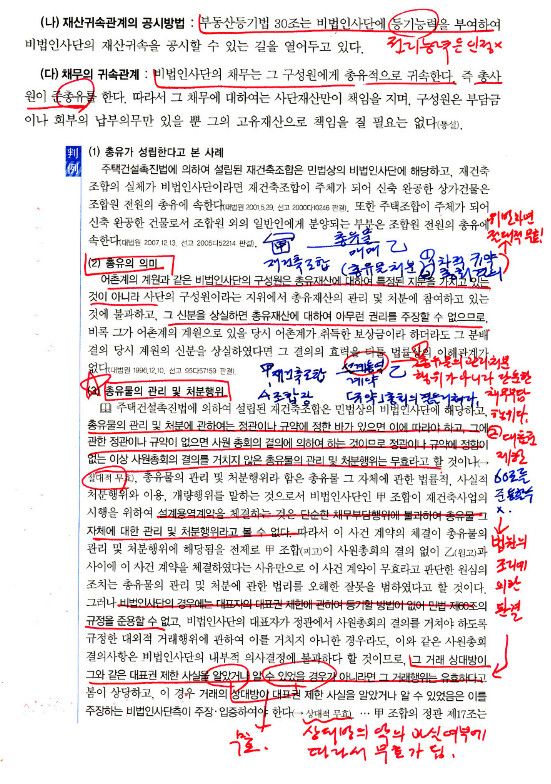 (나) 재산귀속관계의 공시방법 : 부동산등기법 30조는 비법인사단에 등기능력을 부여하여
비법인사단의 재산귀속을 공시할 수 있는 길을 열어두고 있다.
권리능력은 인정×
(다) 채무의 귀속관계 : 비법인사단의 채무는 그 구성원에게 총유적으로 귀속한다. 즉 총사
원이 준총유를 한다. 따라서 그 채무에 대하여는 사단재산만이 책임을 지며, 구성원은 부담금
이나 회부의 납부의무만 있을 뿐 그의 고유재산으로 책임을 질 필요는 없다(통설).
판례
(1) 총유가 성립한다고 본 사례
주택건설촉진법에 의하여 설립된 재건축조합은 민법상의 비법인사단에 해당하고, 재건축
조합의 실체가 비법인사단이라면 재건축조합이 주체가 되어 신축 완공한 상가건물은
조합원 전원의 총유에 속한다(대법원 2001.5.29, 선고 2000다10246 판결). 또한 주택조합이 주체가 되어
신축 완공한 건물로서 조합원 외의 일반인에게 분양되는 부분은 조합원 전원의 총유에
속한다(대법원 2007.12.13, 선고 2005다52214 판결).
甲 총유물 매매 乙
재건축조합
(2) 총유의 의미
어촌계의 계원과 같은 비법인사단의 구성원은 총유재산에 대하여 특정된 지분을 가지고 있는
것이 아니라 사단의 구성원이라는 지위에서 총유재산의 관리 및 처분에 참여하고 있는
것에 불과하고, 그 신분을 상실하면 총유재산에 대하여 아무런 권리를 주장할 수 없으므로,
비록 그가 어촌계의 계원으로 있을 당시 어촌계가 취득한 보상금이라 하더라도 그 분배
결의 당시 계원의 신분을 상실하였다면 그 결의의 효력을 다툴 법률상의 이해관계가
없다(대법원 1996.12.10, 선고 95다57159 판결).
甲 재건축조합 설계용역 계약 乙
(3) 총유물의 관리 및 처분행위
[1] 주택건설촉진법에 의하여 설립된 재건축조합은 민법상의 비법인사단에 해당하고,
총유물의 관리 및 처분에 관하여는 정관이나 규약에 정한 바가 있으면 이에 따라야 하고, 그에
관한 정관이나 규약이 없으면 사원 총회의 결의에 의하여 하는 것이므로 정관이나 규약에 정함이
없는 이상 사원총회의 결의를 거치지 않은 총유물의 관리 및 처분행위는 무효라고 할 것이나(→
절대적 무효), 총유물의 관리 및 처분행위라 함은 총유물 그 자체에 관한 법률적, 사실적
처분행위와 이용, 개량행위를 말하는 것으로서 비법인사단인 甲 조합이 재건축사업의
시행을 위하여 설계용역계약을 체결하는 것은 단순한 채무부담행위에 불과하여 총유물 그
자체에 대한 관리 및 처분행위라고 볼 수 없다. 따라서 이 사건 계약의 체결이 총유물의
관리 및 처분행위에 해당됨을 전제로 甲 조합(피고)이 사원총회의 결의 없이 乙(원고)과
사이에 이 사건 계약을 체결하였다는 사유만으로 이 사건 계약이 무효라고 판단한 원심의
조치는 총유물의 관리 및 처분에 관한 법리를 오해한 잘못을 범하였다고 할 것이다.
그러나 비법인사단의 경우에는 대표자의 대표권 제한에 관하여 등기할 방법이 없어 민법 제60조의
규정을 준용할 수 없고, 비법인사단의 대표자가 정관에서 사원총회의 결의를 거쳐야 하도록
규정한 대외적 거래행위에 관하여 이를 거치지 아니한 경우라도, 이와 같은 사원총회
결의사항은 비법인사단의 내부적 의사결정에 불과하다 할 것이므로, 그 거래 상대방이
그와 같은 대표권 제한 사실을 알았거나 알 수 있었을 경우가 아니라면 그 거래행위는 유효하다고
봄이 상당하고, 이 경우 거래의 상대방이 대표권 제한 사실을 알았거나 알 수 있었음은 이를
주장하는 비법인사단측이 주장·입증하여야 한다(→ 상대적 무효) … 甲 조합의 정관 제17조는
② 대표권
제한
60조를
준용할수
×.
무효.
상대방의 악의 과실여부에
따라서 무효가 됨.